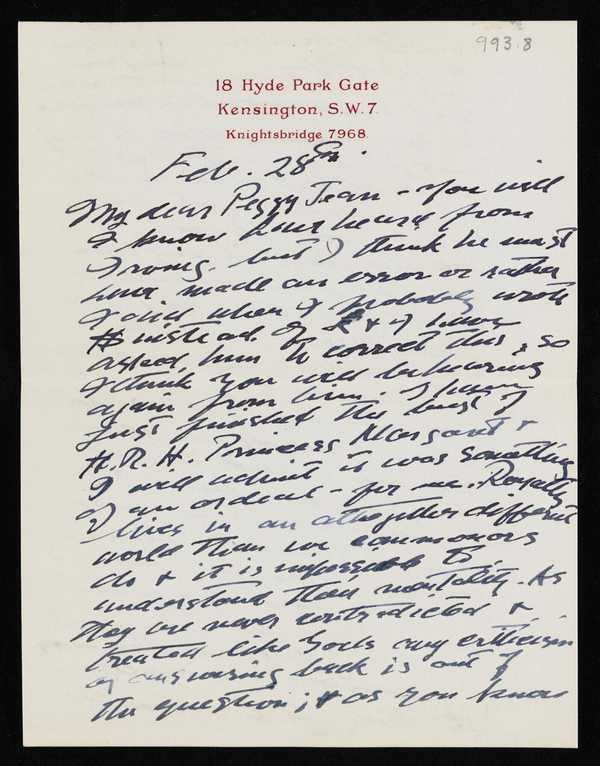 993.8
18 Hyde Park Gate
Kensington, S.W.7.
Knightsbridge 7968.
Feb. 28th.
My dear Peggy Jean - You will
I know have heard from
Irving. but I think he must
have made an error or rather
I did when I probably wrote
$ instead of £ & I have
asked him to correct this, so
I think you will be hearing
again from him. I have
just finished the bust of
H.R.H. Princess Margaret &
I will admit it was something
of an ordeal - for me. Royalty
lives in an altogether different
world than we commoners
do & it is impossible to
understand their mentality. As
they are never contradicted &
treated like Gods any criticism
or answering back is out of
the question; & as you know